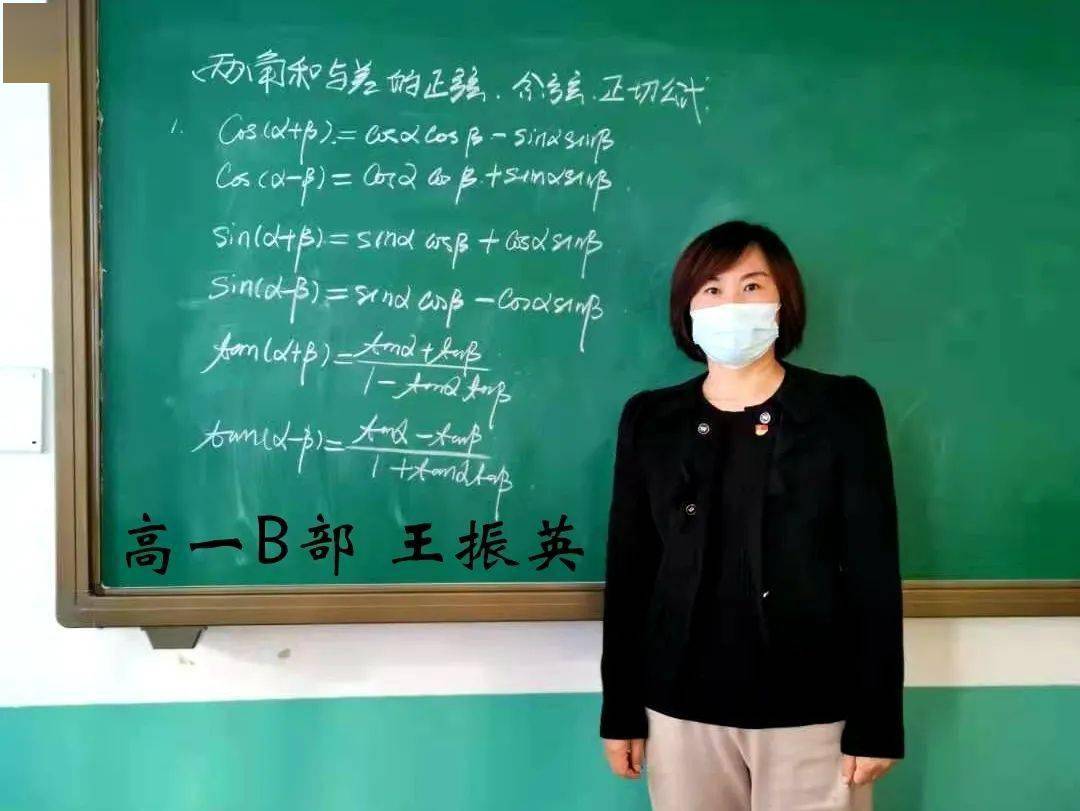 两角和与差的正弦、余弦、正切公式.
1. Cos(α+β)=cosαcosβ-sinαsinβ
Cos(α-β)=Cosαcosβ+sinαsinβ
sin(α+β)=sinαcosβ+cosαsinβ
Sin(α-β)=sinαcosβ-Cosαsinβ
tan(α+β)=\frac{tanα+tanβ}{1-tanαtanβ}
tan(α-β)=\frac{tanα-tanβ}{1+tanαtanβ}
高一B部 王振英